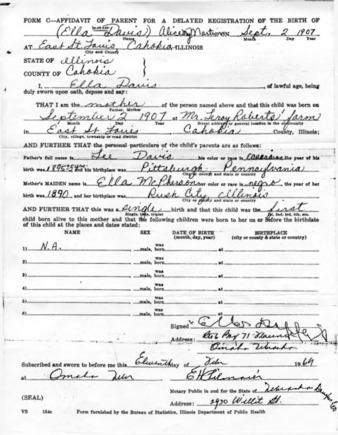 FORM C—AFFIDAVIT OF PARENT FOR A DELAYED REGISTRATION OF THE BIRTH OF
(Ella Davis) Alice Sept. 2 1907
Name Month Day Year
AT East St. Louis, Cahokia, ILLINOIS
City and County
STATE OF Illinois
COUNTY OF Cahokia
I, Ella Davis, of lawful age, being
duly sworn upon oath, depose and say:
THAT I am the mother of the person named above and that this child was born on
Father, Mother
September 2 1907 at Mr. Leroy Roberts' farm
Month Day Year
in East St. Louis Cahokia County, Illinois;
City, village, township or road district
AND FURTHER that the personal particulars of the child's parents are as follows:
Father's full name is Lee Davis his color or race is the year of his
birth was and his birthplace was Pittsburgh Pennsylvania
City or county and state or country
Mother's MAIDEN name is Ella McPherson her color or race is negro, the year of her
birth was 1890, and her birthplace was Rush City Illinois
City or county and state or country
AND FURTHER that this was a single birth and that this child was the first
Single, twin, triplet 1st, 2nd, 3rd, 4th, etc.
child born alive to this mother and that the following children were born to her on or before the birthdate
of this child at the places and dates stated:
NAME SEX DATE OF BIRTH BIRTHPLACE
(month, day, year) (city or county & state or country)
1) N.A. male, was born
2) male, was born
3) male, was born
4) male, was born
5) male, was born
6) male, was born
Signed
Address:
Omaha
Subscribed and sworn to before me this day of 1969
at Omaha Nebr
Notary Public in and for the State of Nebraska
(SEAL)
Address: St.
VS Form furnished by the Bureau of Statistics, Illinois Department of Public Health